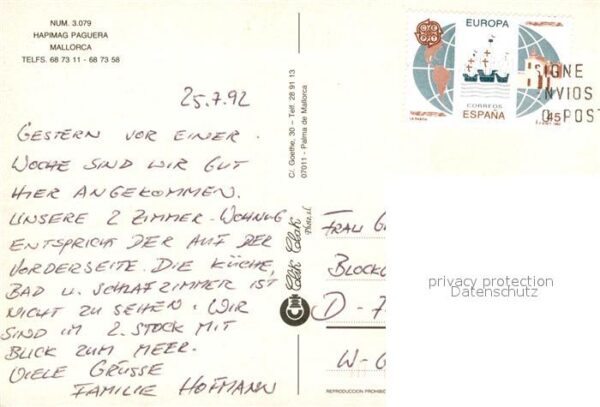 NUM. 3.079
HAPIMAG PAGUERA
MALLORCA
TELFS. 68 73 11 - 68 73 58
25.7.92
GESTERN VOR EINER
WOCHE SIND WIR GUT
HIER ANGEKOMMEN.
UNSERE 2 ZIMMER-WOHNUG
ENTSPRICHT DER AUF DER
VORDERSEITE. DIE KÜCHE,
BAD U. SCHLAFZIMMER IST
NICHT ZU SEHEN. WIR
SIND IM 2. STOCK MIT
BLICK ZUM MEER.
VIELE GRÜSSE
FAMILIE HOFMANN
C/. Goethe, 30 – Telf. 28 91 13
07011 - Palma de Mallorca
Clik Clak
Photo s.l.
EUROPA
CORREOS
ESPAÑA
45
SIGNE
NVIOS
POST
FRAU G
BLOCK
D - 7
W - G
REPRODUCCION PROHIBID
privacy protection
Datenschutz